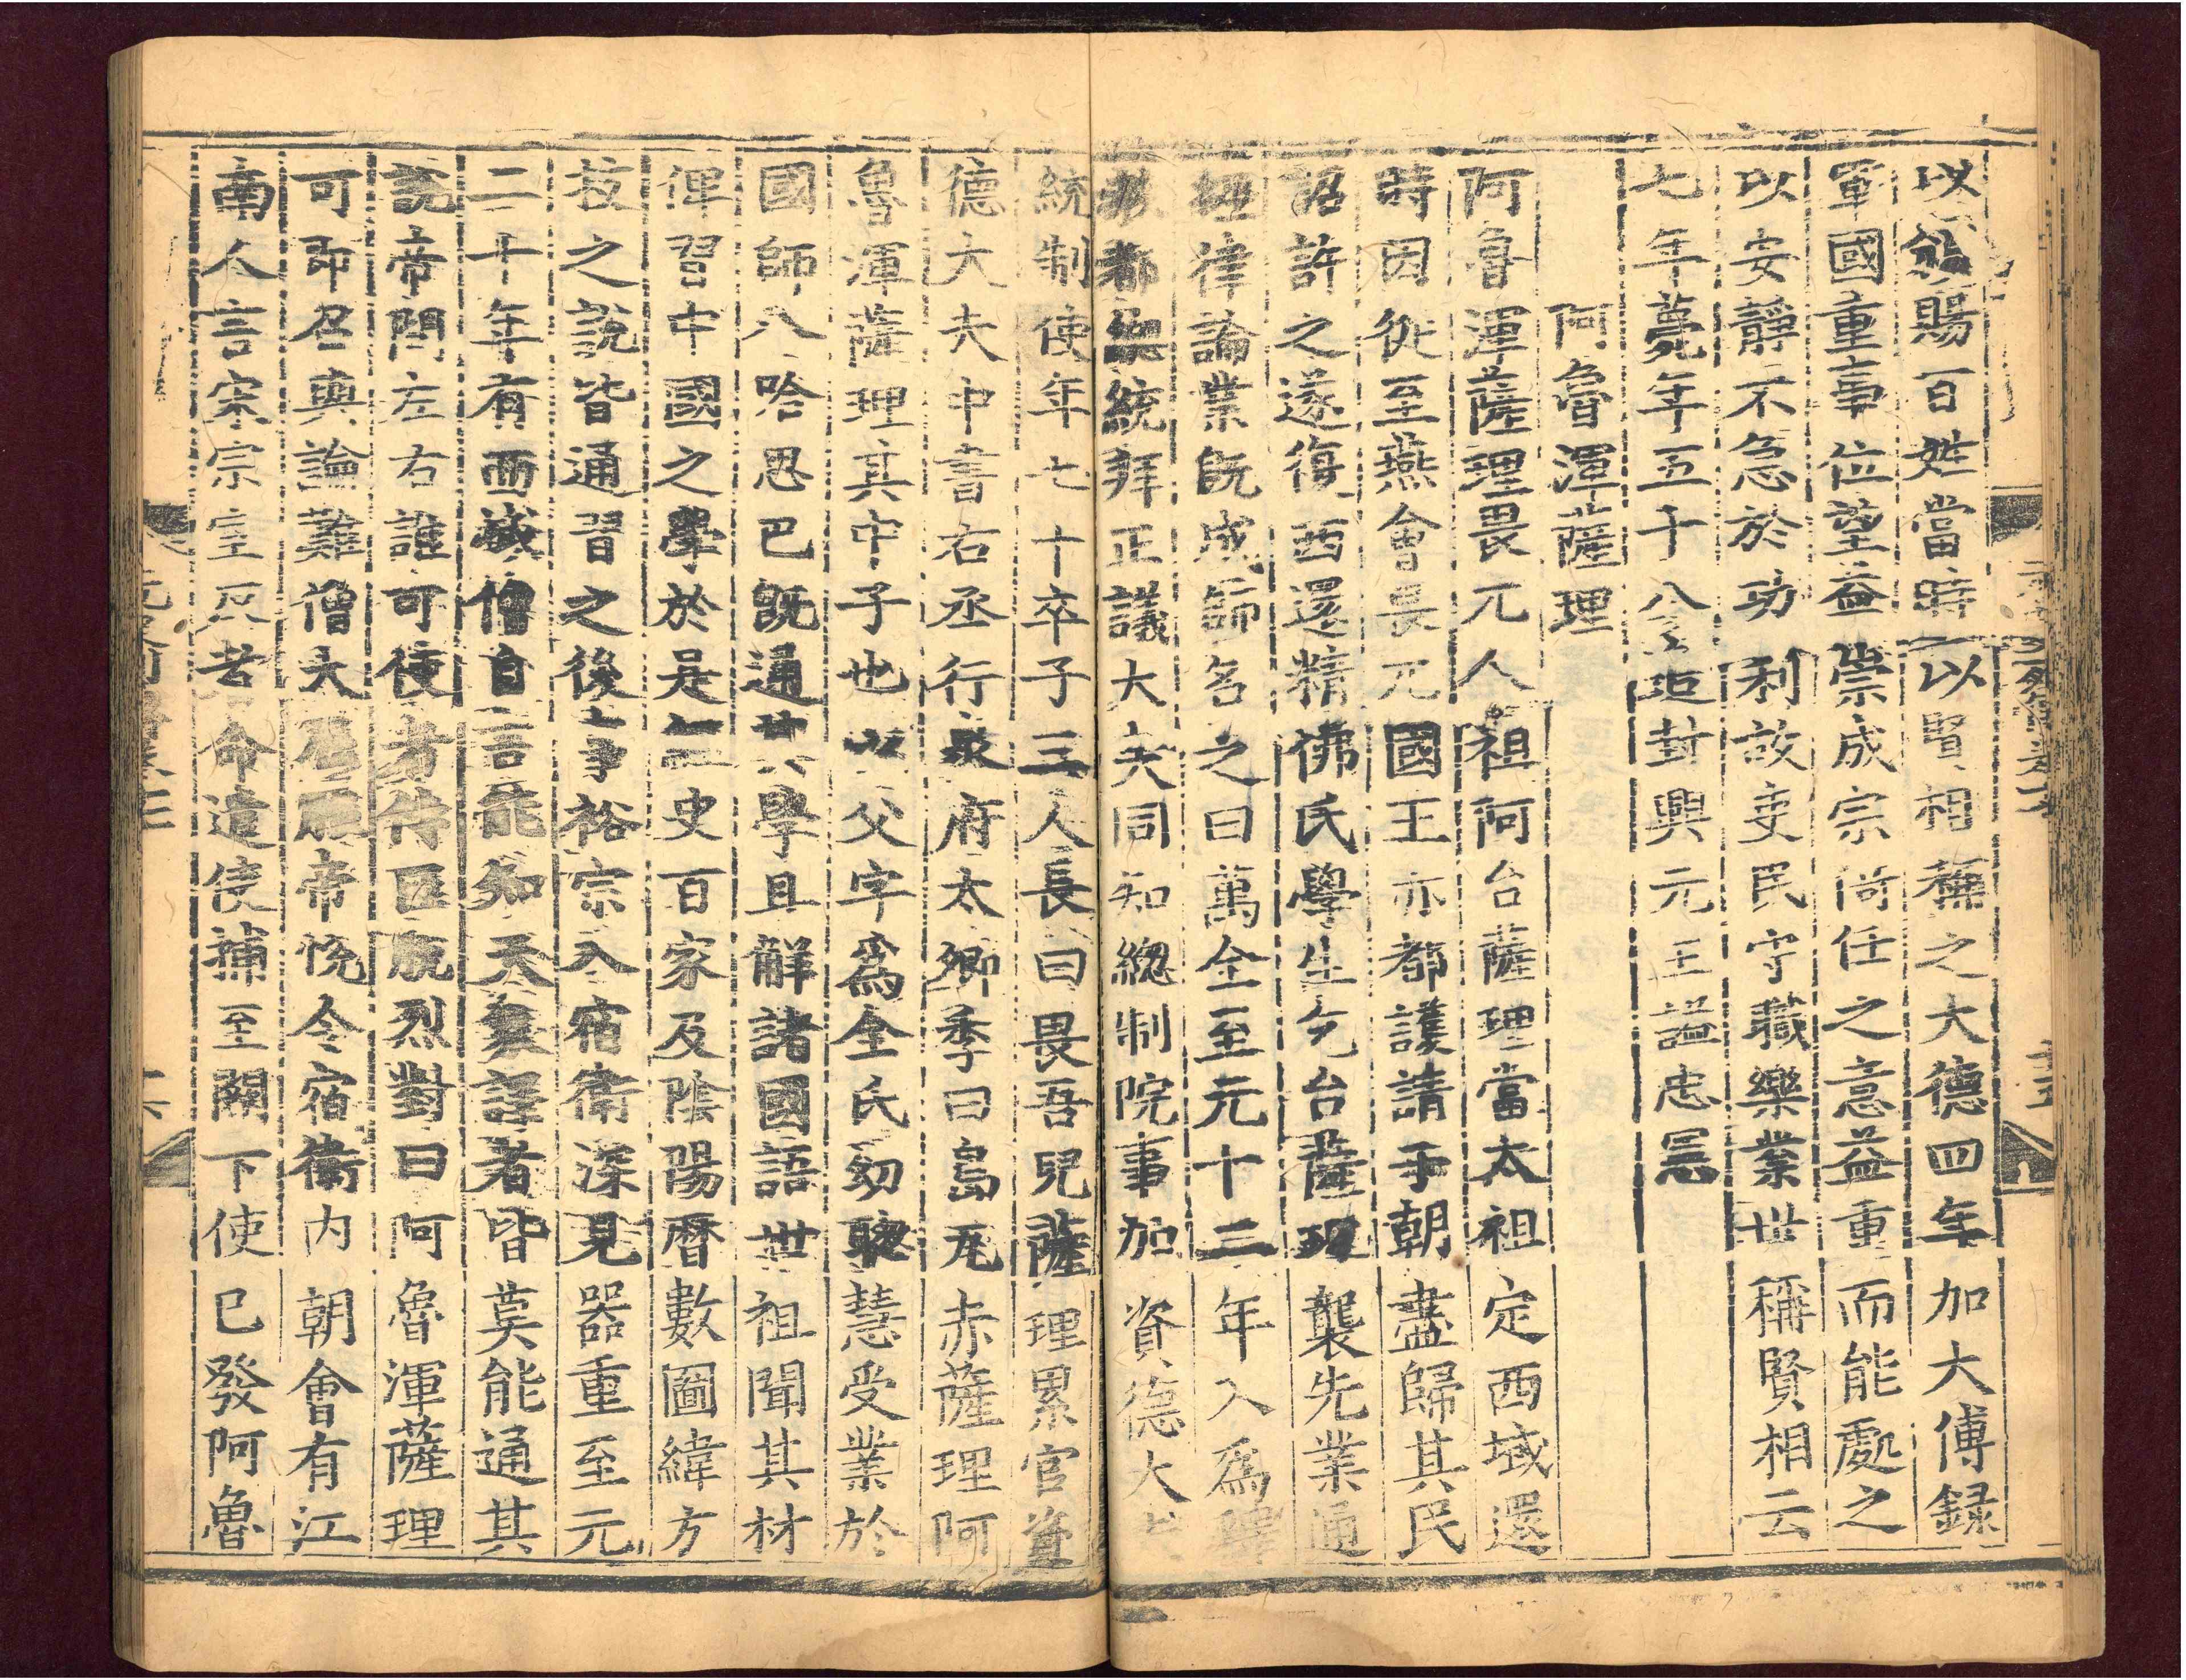 以 賜百姓當時以賢相稱之大德四年加大傅録
軍國重事位望益崇成宗倚任之意益重而能處之
以安靜不急於功利故吏民守職樂業世稱賢相云
七年薨年五十八 追封興元王謚忠憲
阿魯渾薩理
阿魯渾薩理畏兀人祖阿台薩理當太祖定西域還
時因從至燕會畏兀國王亦都護請于朝盡歸其民
詔許之遂復西還精佛氏學生乞台薩理襲先業通
經律論業既成師名之曰萬全至元十二年入爲釋
教都總統拜正議大夫同知總制院事加資德大夫
統制使年七十卒子三人長曰畏吾兒薩理累官資
德大夫中書右丞行泉府太卿季曰島瓦赤薩理阿
魯渾薩理其中子也以父字爲全氏幼聰慧受業於
國師八哈思巴既通其學且解諸國語世祖聞其材
俾習中國之學於是經史百家及陰陽曆數圖緯方
技之說皆通習之後事裕宗入宿衛深見器重至元
二十年有西域僧自言能知天象譯者皆莫能通其
說帝問左右誰可使者侍臣脱烈對曰阿魯渾薩理
可即召與論難僧大屈服帝悅令宿衛内朝會有江
南人言宋宗室反者命遣使捕至闕下使已發阿魯